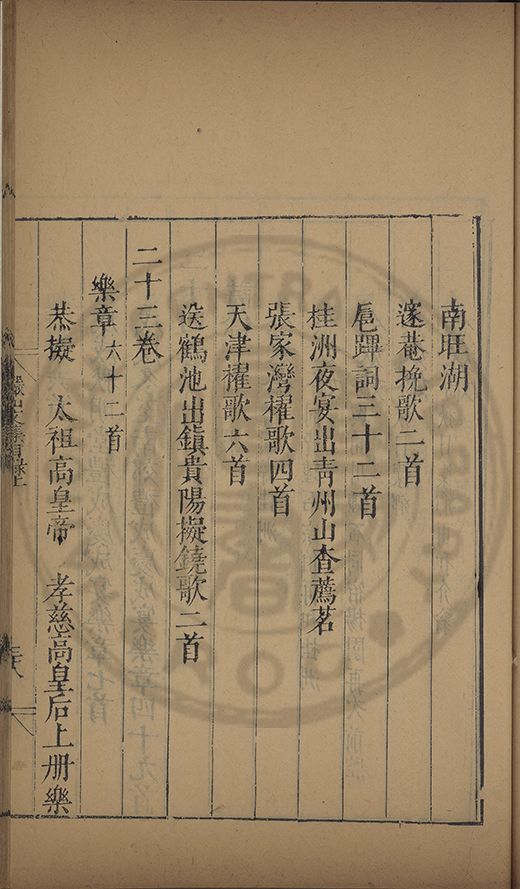 南旺湖
邃菴挽歌二首
扈蹕詞三十二首
桂洲夜宴出青州山查薦茗
張家灣櫂歌四首
天津櫂歌六首
送鶴池出鎮貴陽擬鐃歌二首
二十三卷
樂章六十二首
恭擬 太祖高皇帝 孝慈高皇后上册樂